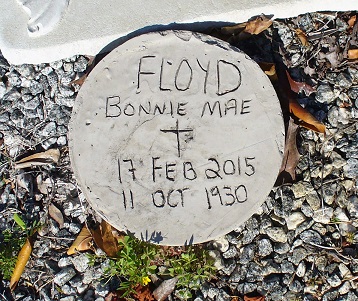 FLOYD
BONNIE MAE
17 FEB 2015
11 OCT 1930